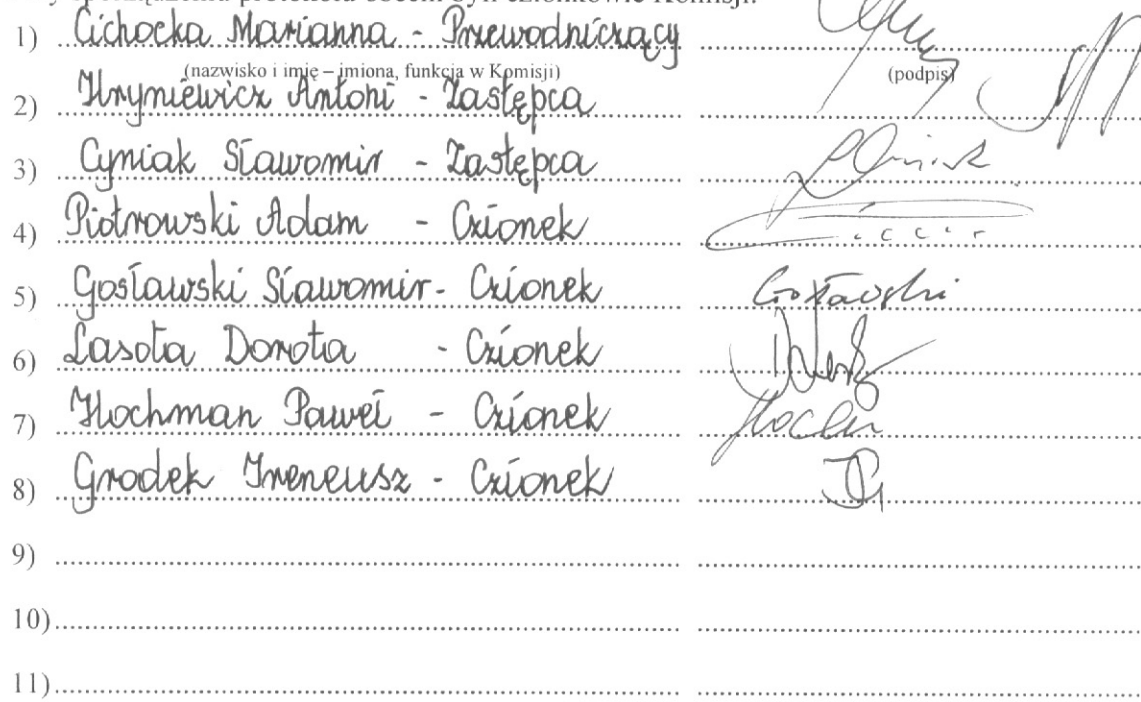 1) Cichocka Marianna - Przewodniczący
(nazwisko i imię – imiona, funkcja w Komisji) (podpis)
2) Hryniewicz Antoni - Zastępca
3) Cyniak Sławomir - Zastępca
4) Piotrowski Adam - Członek
5) Gosławski Sławomir - Członek Gosławski
6) Lasota Dorota - Członek
7) Hochman Paweł - Członek
8) Grodek Ireneusz - Członek
9)
10)
11)